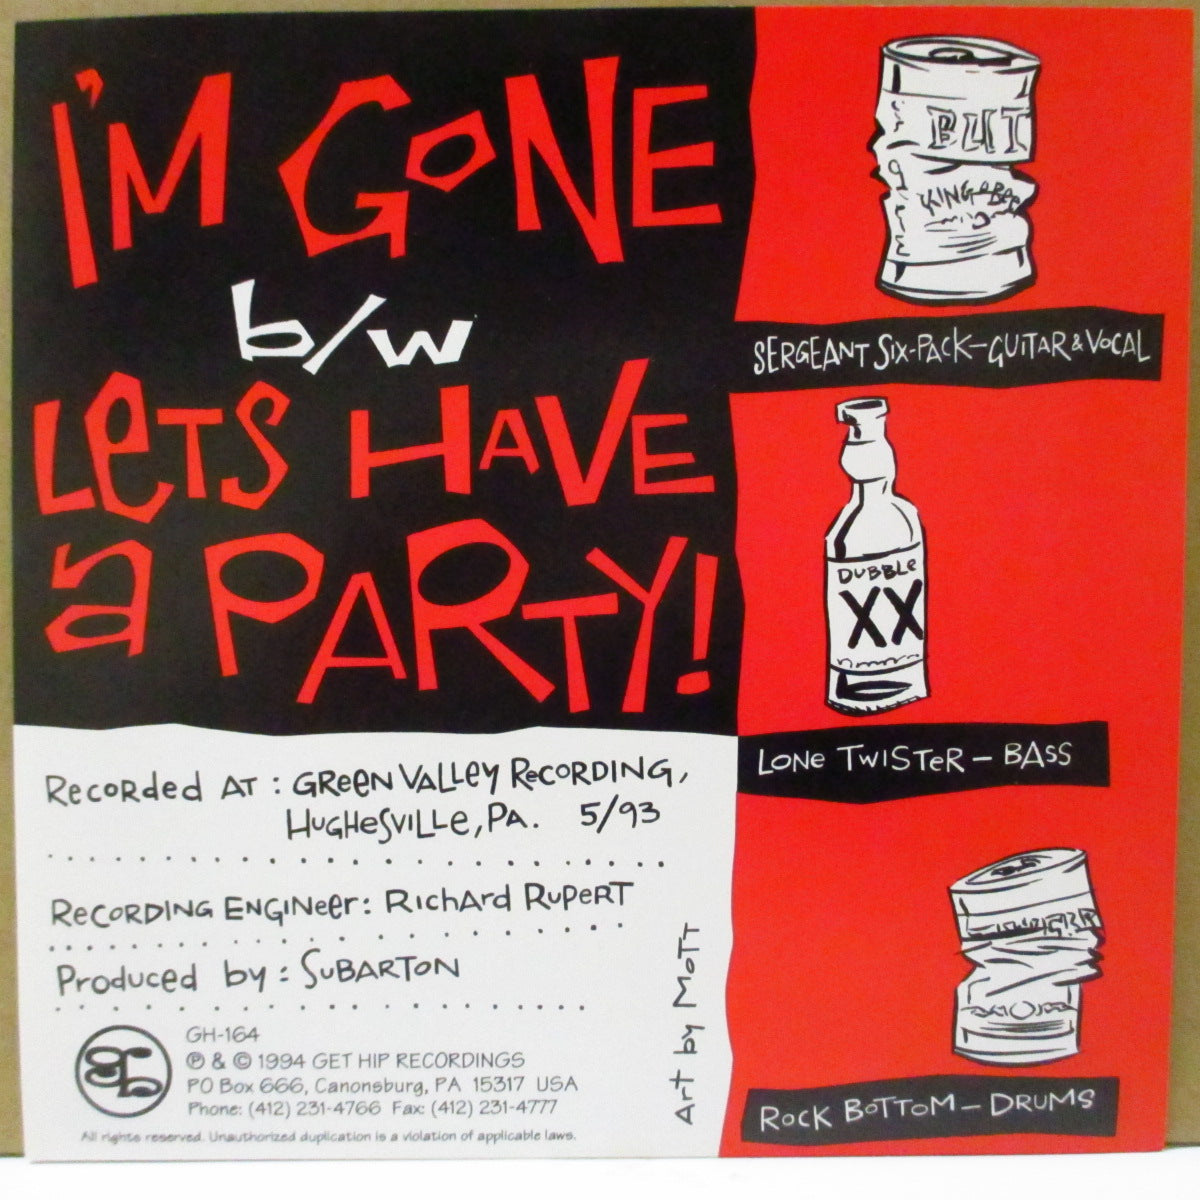 I'M GONE
b/w
LETS HAVE
a PARTY!
BUT
KING BEE
SERGEANT SIX-PACK—GUITAR & VOCAL
DUBBLE
XX
LONE TWISTER — BASS
ROCK BOTTOM — DRUMS
Recorded AT : GREEN VALLEY RECORDING,
HUGHESVILLE, PA. 5/93
RECORDING ENGINEER: RICHARD RUPERT
Produced by : SUBARTON
Art by MOTT
GH-164
℗ & © 1994 GET HIP RECORDINGS
PO Box 666, Canonsburg, PA 15317 USA
Phone: (412) 231-4766 Fax: (412) 231-4777
All rights reserved. Unauthorized duplication is a violation of applicable laws.